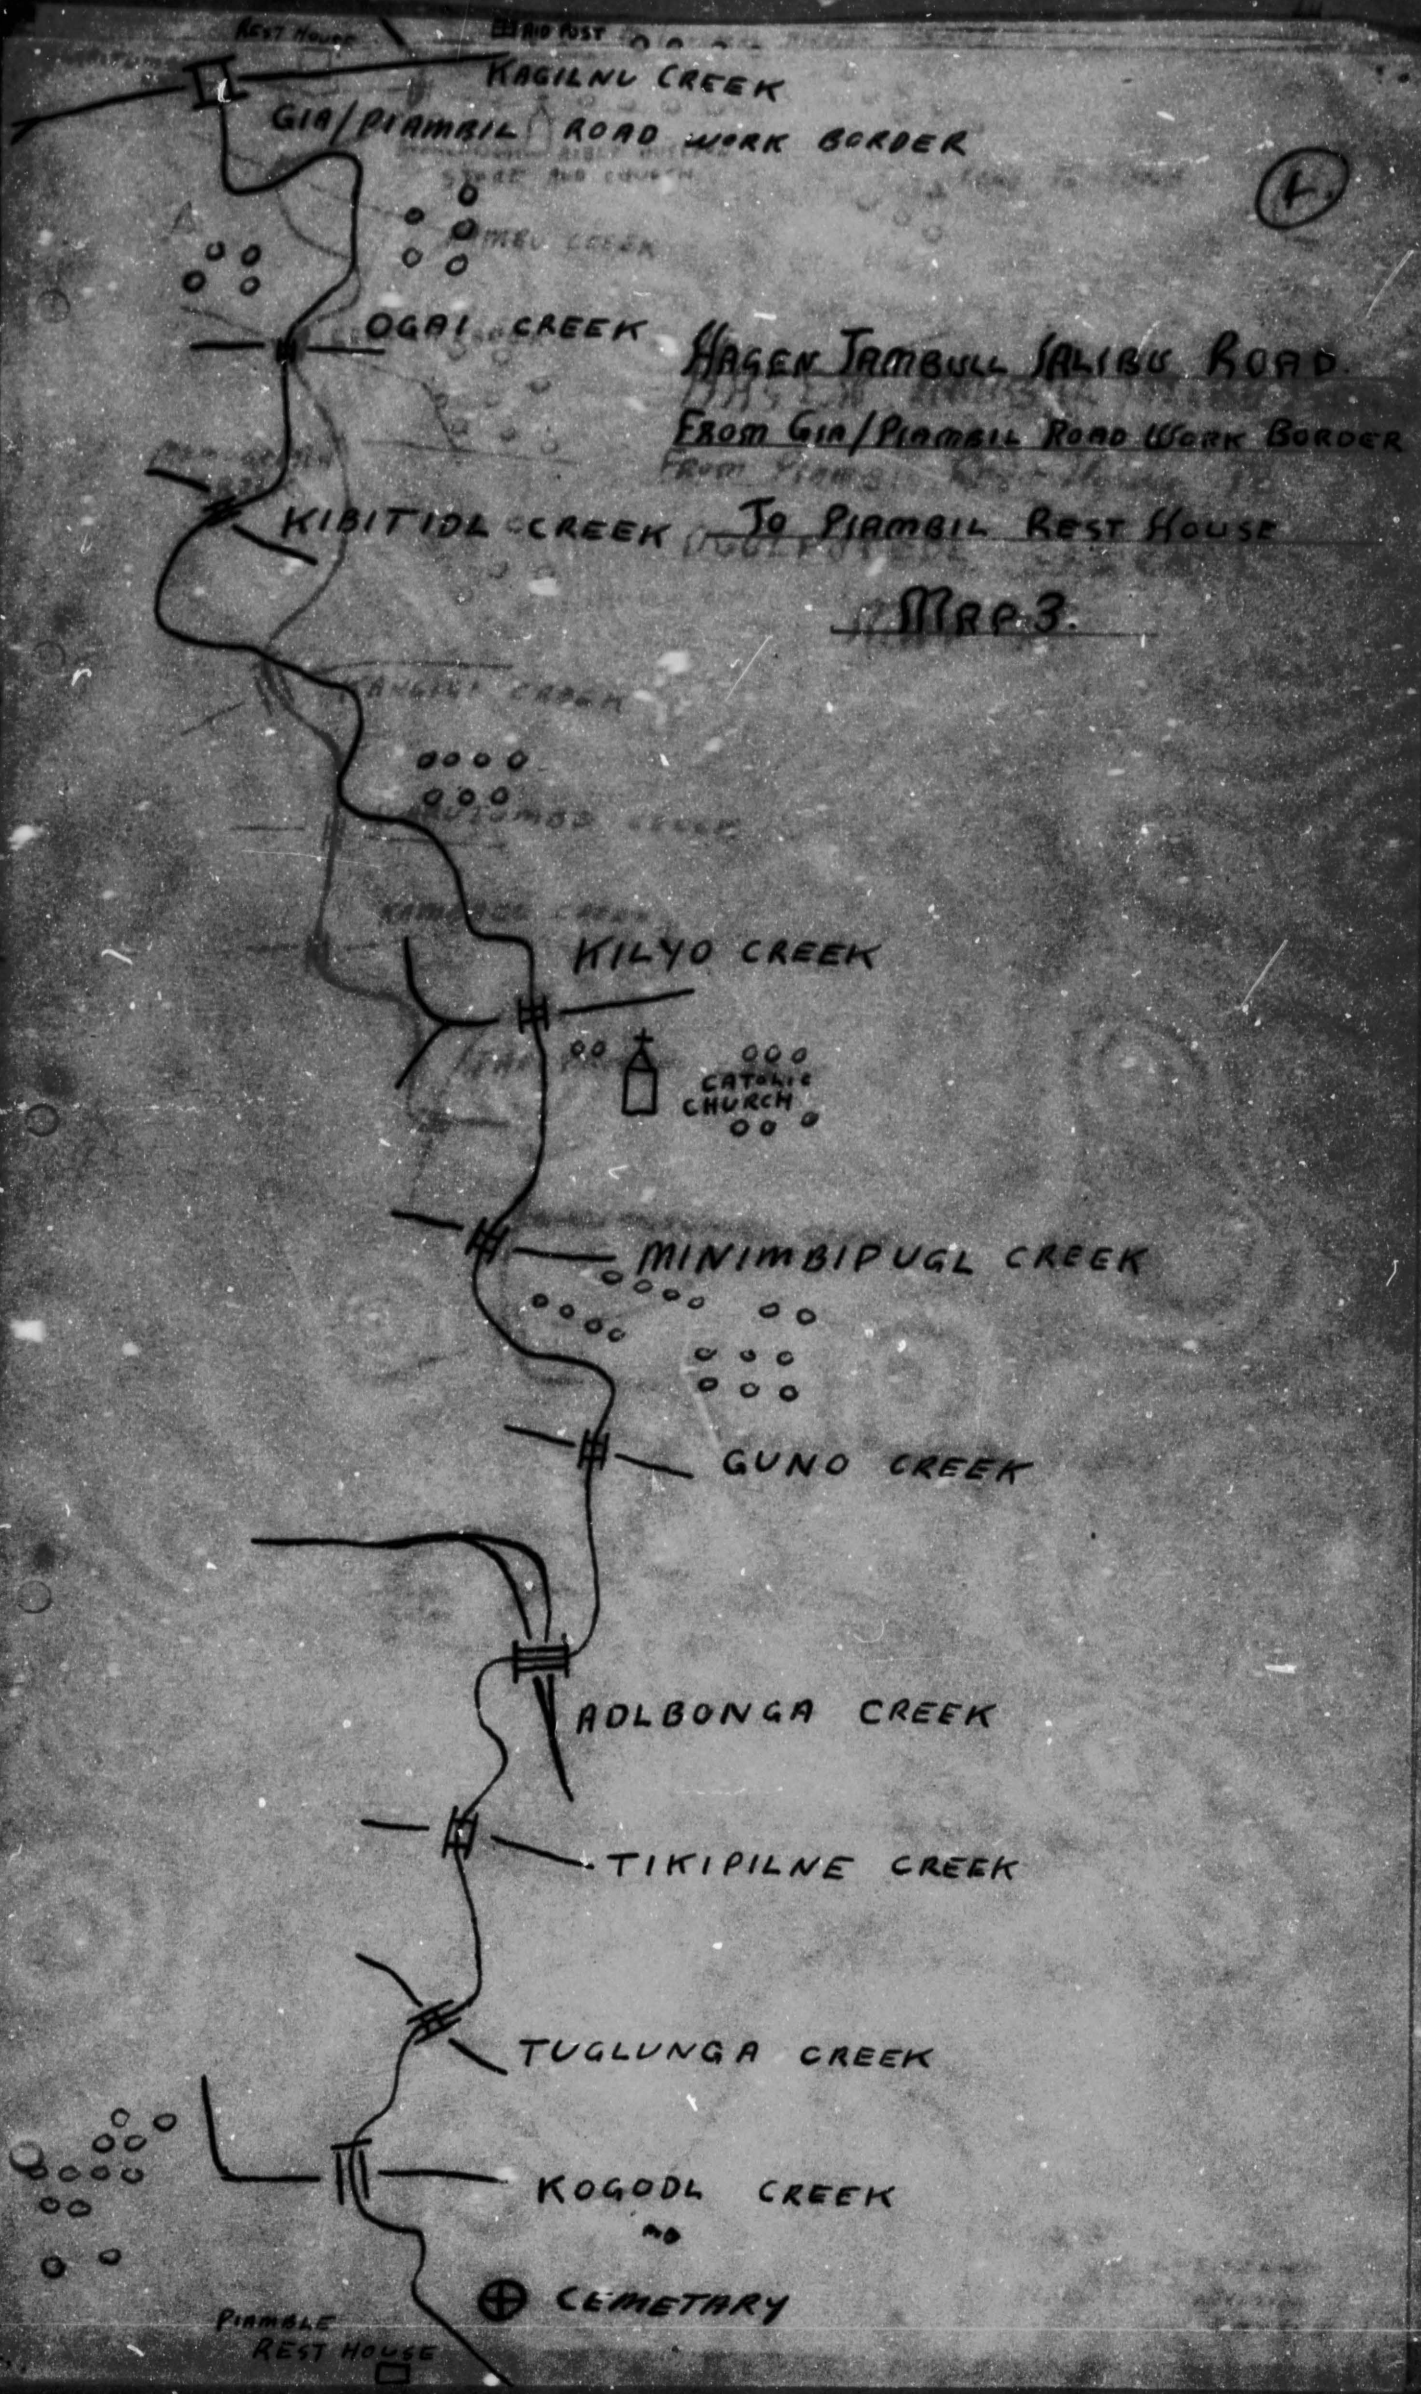 REST HOUSE
AID POST
KAGILNU CREEK
GIA/PIAMBIL ROAD WORK BORDER
STORE AND CHURCH
CREEK
OGAI CREEK
HAGEN TAMBULL IALIBU ROAD.
FROM GIA/PIAMBIL ROAD WORK BORDER
FROM PIAMBIL REST HOUSE
KIBITIDL CREEK
TO PIAMBIL REST HOUSE
MAP 3.
CREEK
CREEK
CREEK
KILYO CREEK
CATOLIC
CHURCH
MINIMBIPUGL CREEK
GUNO CREEK
ADLBONGA CREEK
TIKIPILNE CREEK
TUGLUNGA CREEK
KOGODL CREEK
CEMETARY
PIAMBLE
REST HOUSE